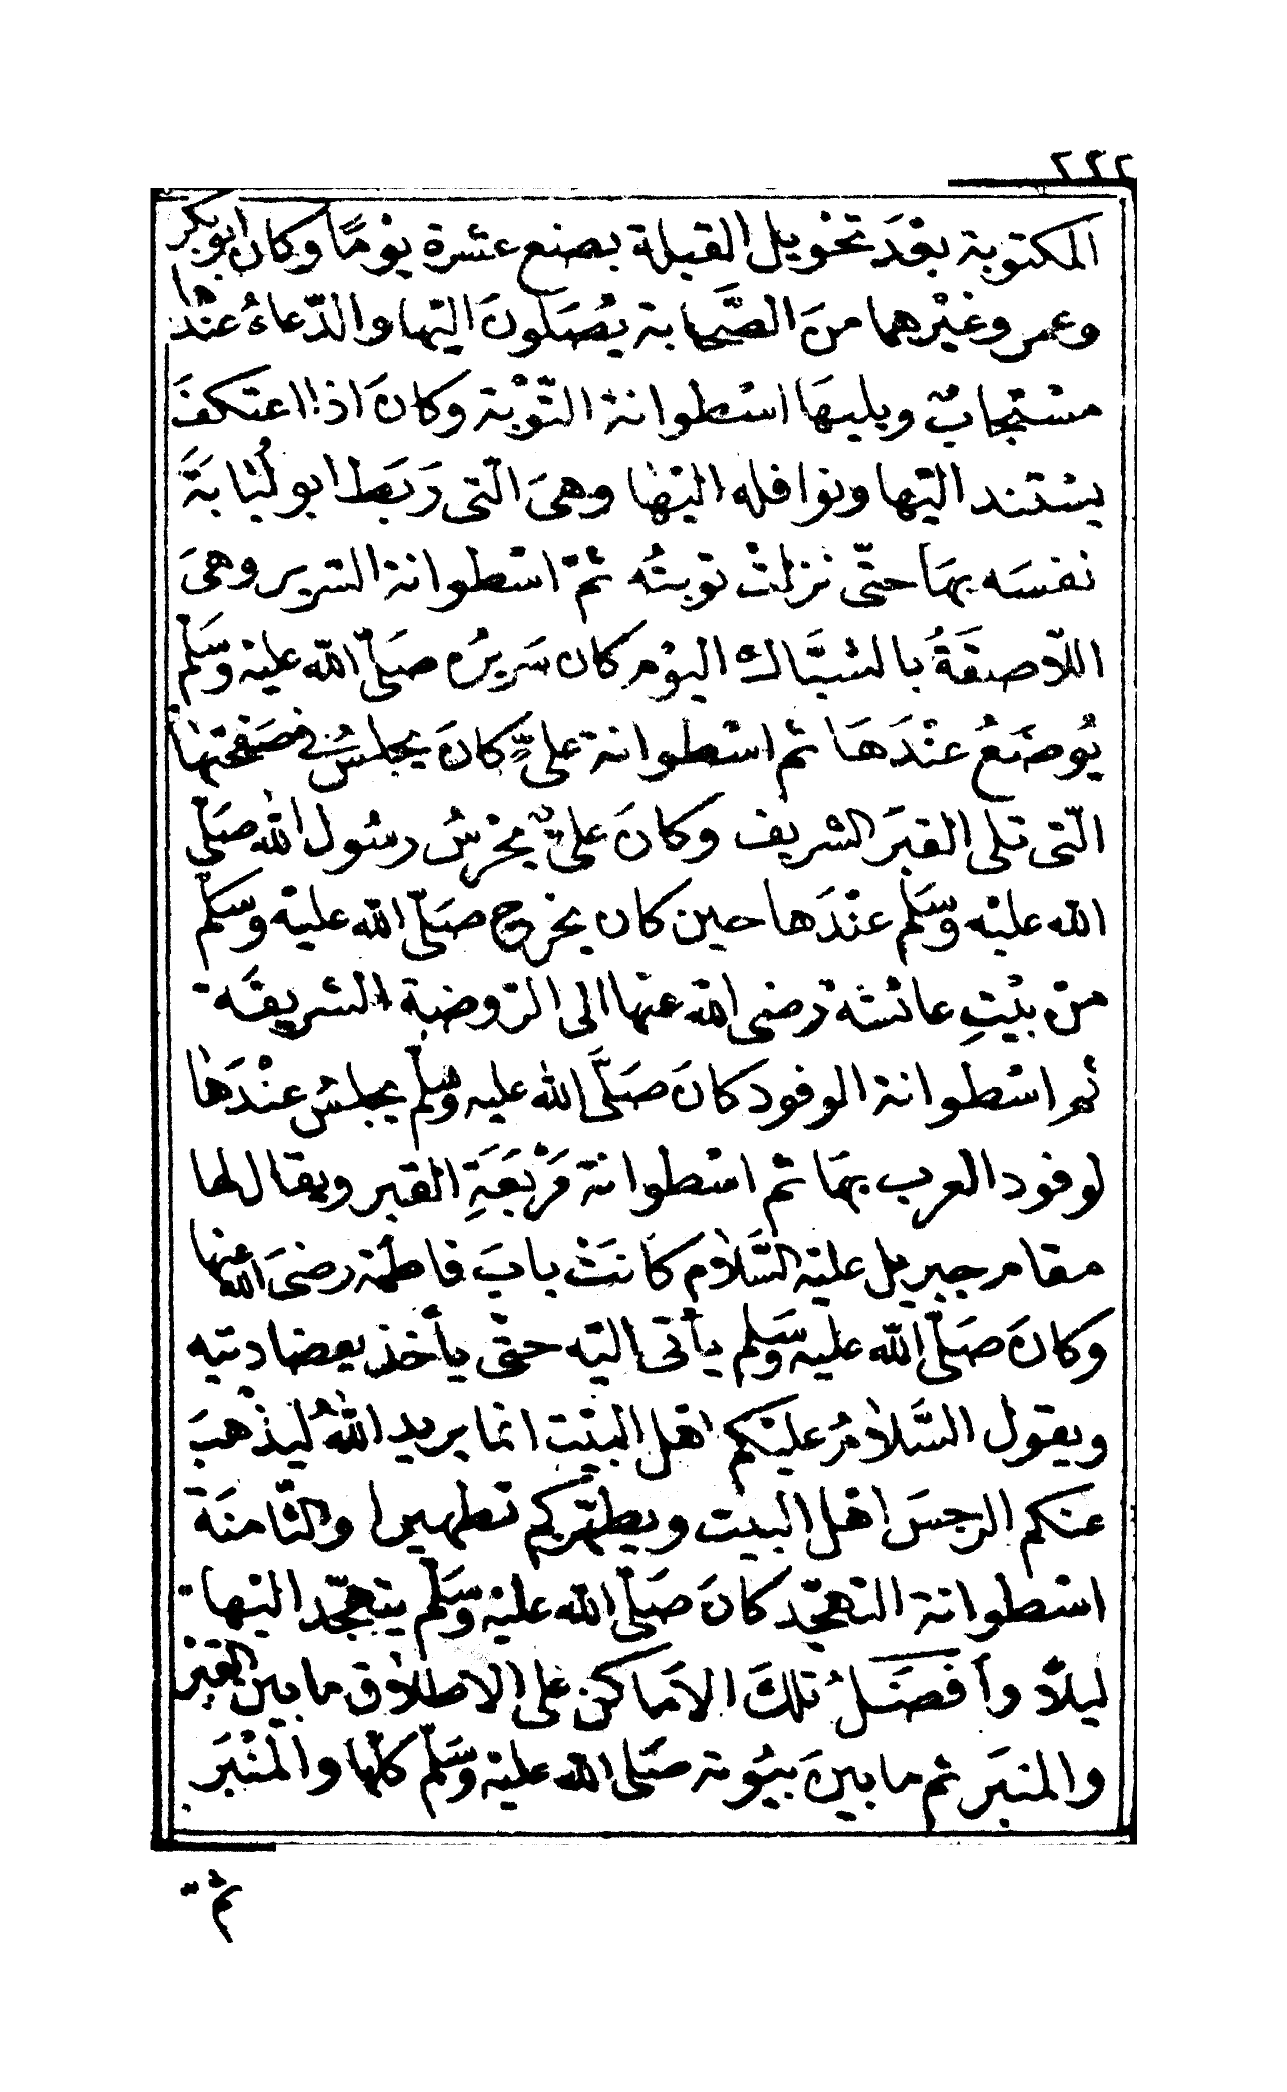 ٢٢٢
المكتوبة بعْدَ تحْويل القبلة بضع عشرة يوْمًا وكان ابوبكر
وعمر وغيْرهما منَ الصَّحابة يُصَلونَ اليْها والدّعاءُ عنْدها
مسْتجابٌ ويليهَا اسْطوانة التّوْبة وكانَ اذا اعتكفَ
يسْتند اليْها ونوافله اليْها وهىَ الّتى رَبَط ابو لُبَابَةَ
نفسَه بهَا حتّى نزلتْ توبتُه ثمّ اسْطوانة السّرير وهىَ
اللّاصقَةُ بالشبَّاك اليوْم كان سَريرُه صَلّى الله عليْه وَسَلّم
يُوضَعُ عنْدَهَا ثم اسْطوانة علىٍّ كانَ يجْلسُ فى صَفْحتهَا
الّتى تلى القبَر الشريف وكانَ علىٌّ يحْرسُ رسُول الله صَلّى
الله عليْه وسَلم عنْدَها حين كان يخرج صَلّى الله عليْه وَسَلّم
منْ بيْتِ عائشة رضى الله عنها الى الرّوضة الشريفَة
ثم اسْطوانة الوفود كانَ صَلَّى الله عليه وسلّم يجلسُ عنْدَهَا
لوفود العرب بهَا ثم اسْطوانة مَرْبَعَةِ القبر ويقال لها
مقام جبريل عليْه السَّلام كانتْ بابَ فاطمْة رضىَ الله عنها
وكانَ صَلّى الله عليْه وسَلم يأتى اليْه حتّى يأخذ بعضادتيْه
ويقول السَّلامُ عليْكم اهْل البيْت انما يريد اللهُ ليذْهبَ
عنكم الرجسَ اهْل البيت ويطهّركم تطهيرا والثّامنَة
اسْطوانة التّهجّد كانَ صَلّى الله عليْه وَسَلّم يتهجّد اليْها
ليلاً وأفضَلُ تلكَ الأمَاكن على الاطلاق ما بين القبْر
والمنبَر ثم ما بينَ بيُوته صَلى الله عليْه وَسَلّم كلّها والمنْبَر
ثم